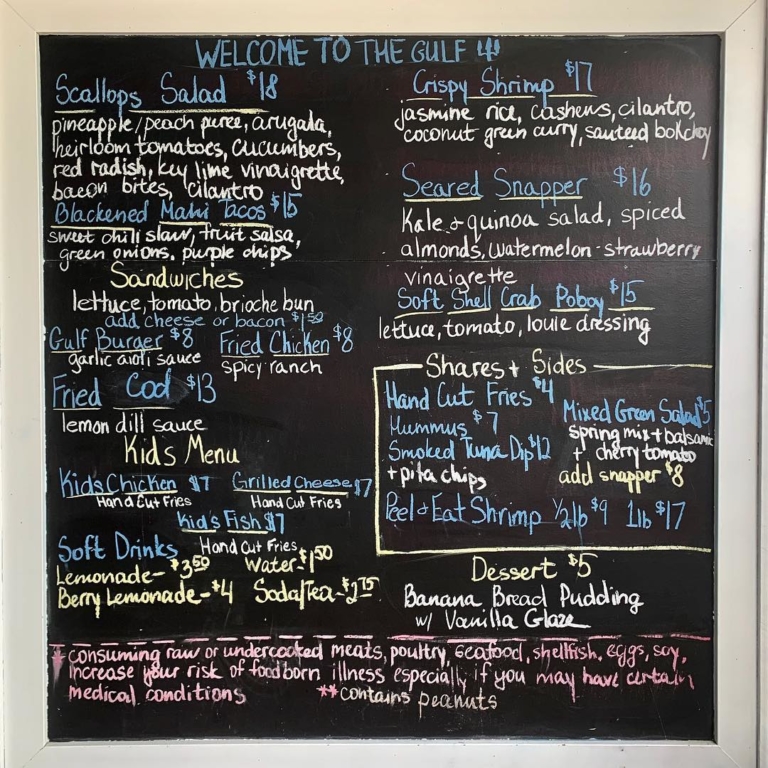 WELCOME TO THE GULF
Scallops Salad $18
pineapple/peach puree, arugala,
heirloom tomatoes, cucumbers,
red radish, key lime vinaigrette,
bacon bites, cilantro
Blackened Mahi Tacos $15
sweet chili slaw, fruit salsa,
green onions, purple chips
Sandwiches
lettuce, tomato, brioche bun
add cheese or bacon $1.50
Gulf Burger $8
garlic aioli sauce
Fried Chicken $8
spicy ranch
Fried Cod $13
lemon dill sauce
Kids Menu
Kids Chicken $7
Hand Cut Fries
Grilled Cheese $7
Hand Cut Fries
Kid's Fish $7
Hand Cut Fries
Soft Drinks
Lemonade- $3.50
Water- $1.50
Berry Lemonade- $4
Soda/Tea- $2.75
Crispy Shrimp $17
jasmine rice, cashews, cilantro,
coconut green curry, sauteed bokchoy
Seared Snapper $16
Kale & quinoa salad, spiced
almonds, watermelon-strawberry
vinaigrette
Soft Shell Crab Poboy $15
lettuce, tomato, louie dressing
Shares + Sides
Hand Cut Fries $4
Hummus $7
Smoked Tuna Dip $12
+ pita chips
Mixed Green Salad $5
spring mix + balsamic
+ cherry tomato
add snapper $8
Peel & Eat Shrimp 1/2lb $9 1lb $17
Dessert $5
Banana Bread Pudding
w/ Vanilla Glaze
* consuming raw or undercooked meats, poultry, seafood, shellfish, eggs, soy,
increase your risk of foodborn illness especially if you may have certain
medical conditions
**contains peanuts